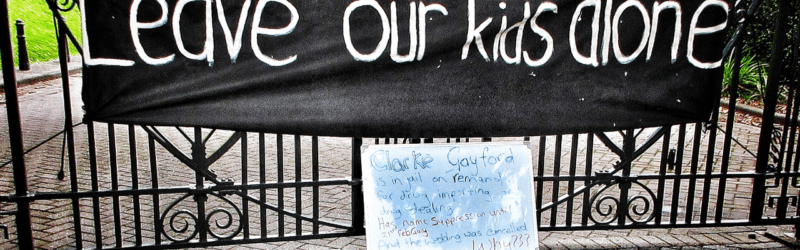 Leave our kids alone
Clarke Gayford
is in jail on remand
for drug importing and
drug dealing
Has name suppression until
February
And the wedding was cancelled
Why???